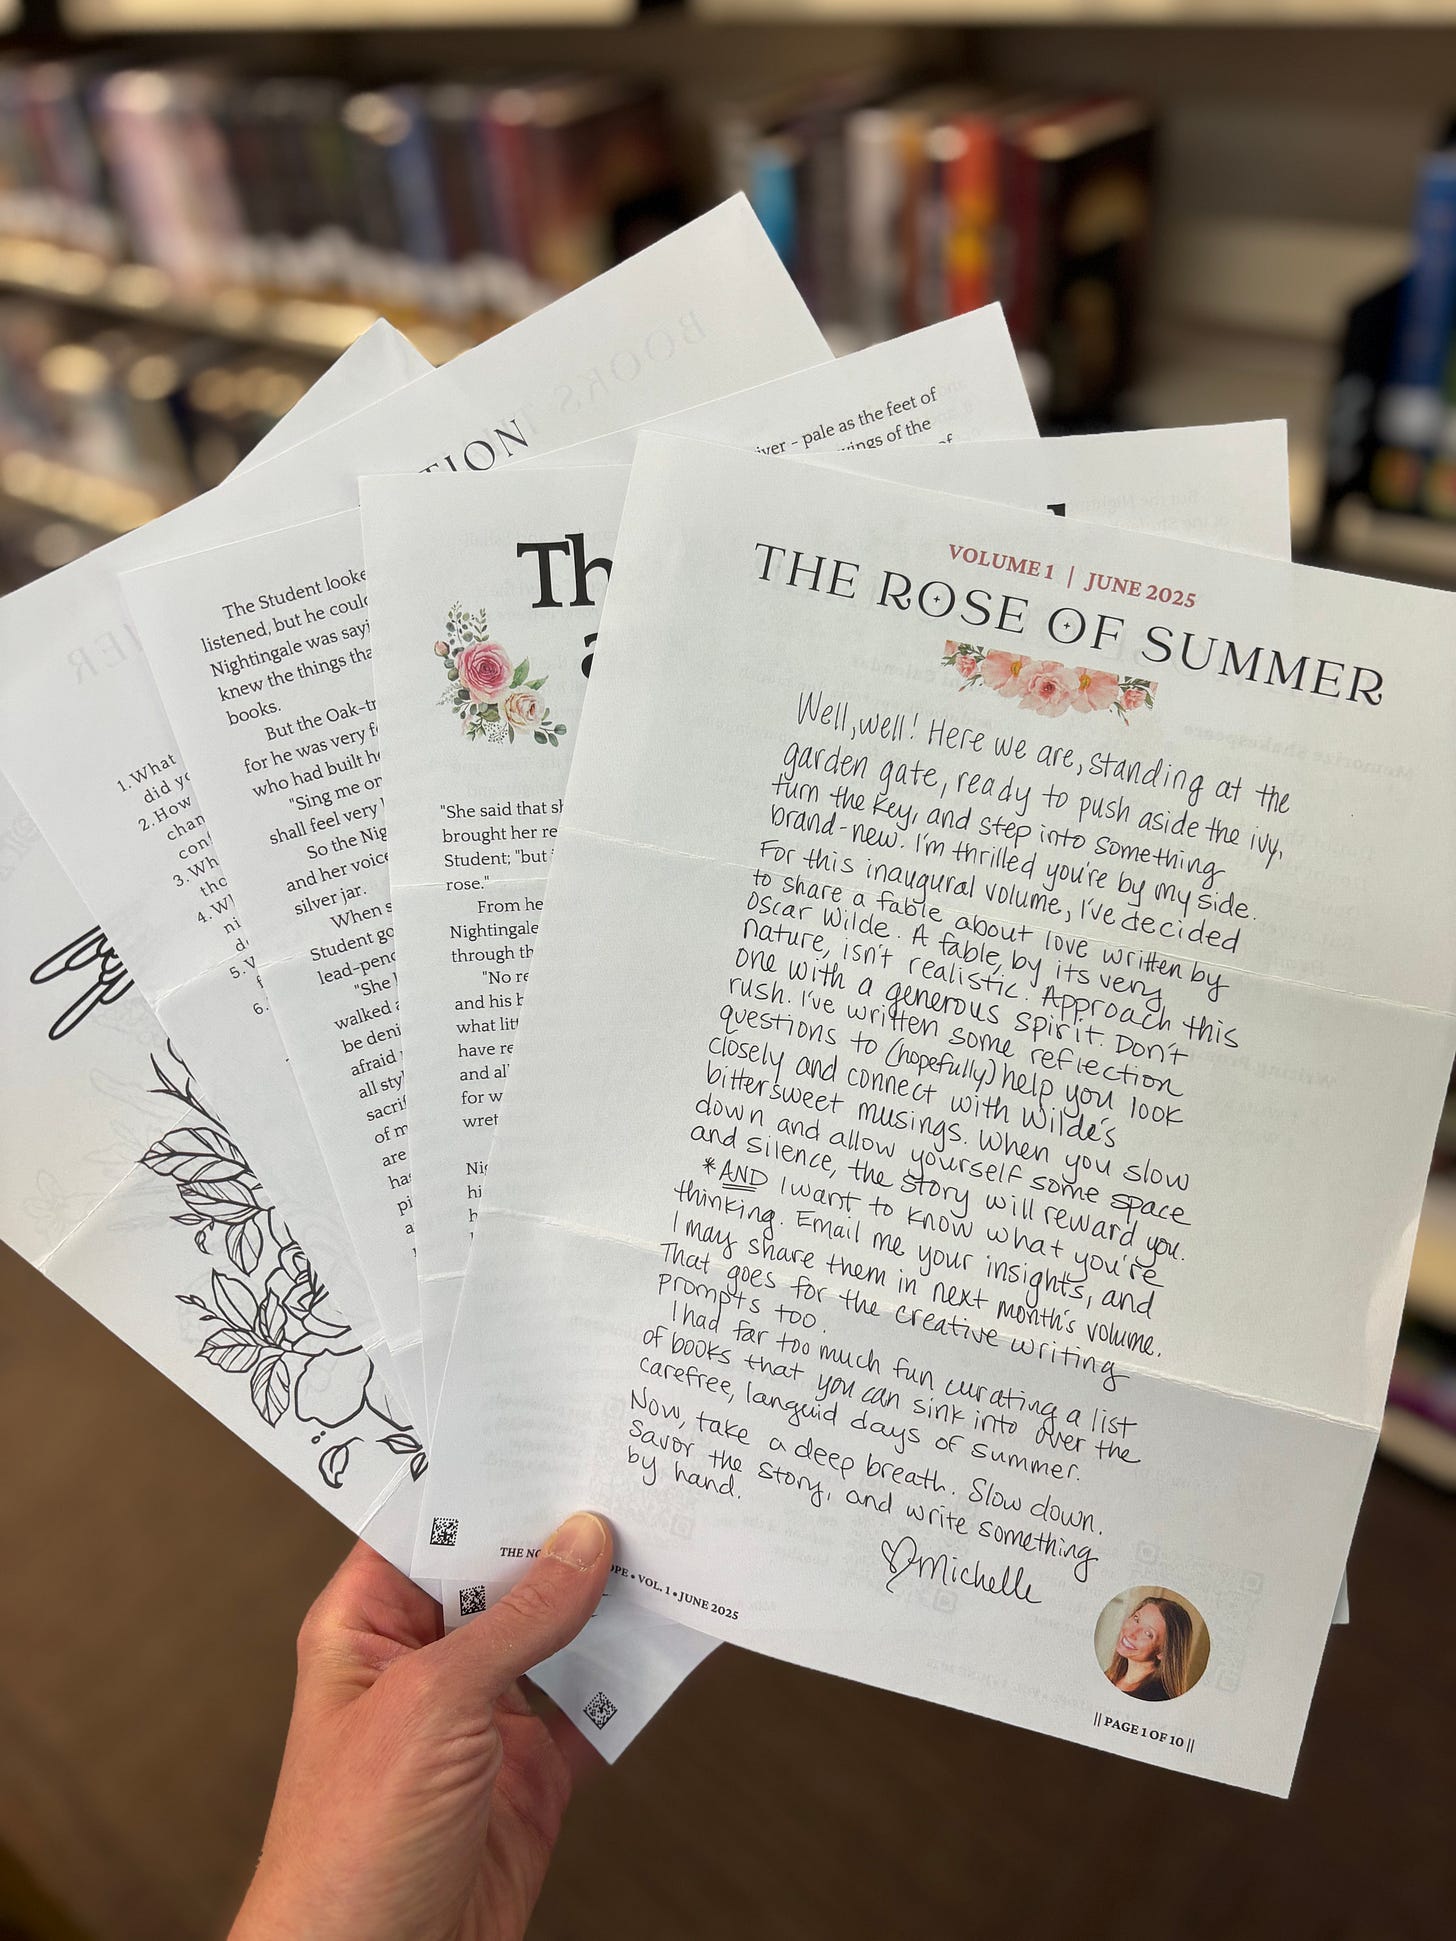 VOLUME 1 | JUNE 2025
THE ROSE OF SUMMER
Well, well! Here we are, standing at the
garden gate, ready to push aside the ivy,
turn the key, and step into something
brand-new. I'm thrilled you're by my side.
For this inaugural volume, I've decided
to share a fable about love written by
Oscar Wilde. A fable, by its very
nature, isn't realistic. Approach this
one with a generous spirit. Don't
rush. I've written some reflection
questions to (hopefully) help you look
closely and connect with Wilde's
bittersweet musings. When you slow
down and allow yourself some space
and silence, the story will reward you.
*AND I want to know what you're
thinking. Email me your insights, and
I may share them in next month's volume.
That goes for the creative writing
prompts too.
I had far too much fun curating a list
of books that you can sink into over the
carefree, languid days of summer.
Now, take a deep breath. Slow down.
Savor the story, and write something
by hand.
♡Michelle
|| PAGE 1 OF 10 ||
THE NO
OPE • VOL. 1 • JUNE 2025
Th
a
"She said that sh
brought her re
Student; "but i
rose."
From he
Nightingale
through th
"No re
and his h
what littl
have re
and al
for w
wret
Nig
hi
h
The Student looke
listened, but he could
Nightingale was sayi
knew the things tha
books.
But the Oak-tr
for he was very f
who had built he
"Sing me on
shall feel very l
So the Nig
and her voice
silver jar.
When s
Student go
lead-penc
"She h
walked a
be deni
afraid
all styl
sacrif
of m
are
has
pi
a
TION
1. What
did yo
2. How
chan
con
3. Wh
tho
4. Wh
ni
d
5. W
f
6.
iver - pale as the feet of
wings of the
of